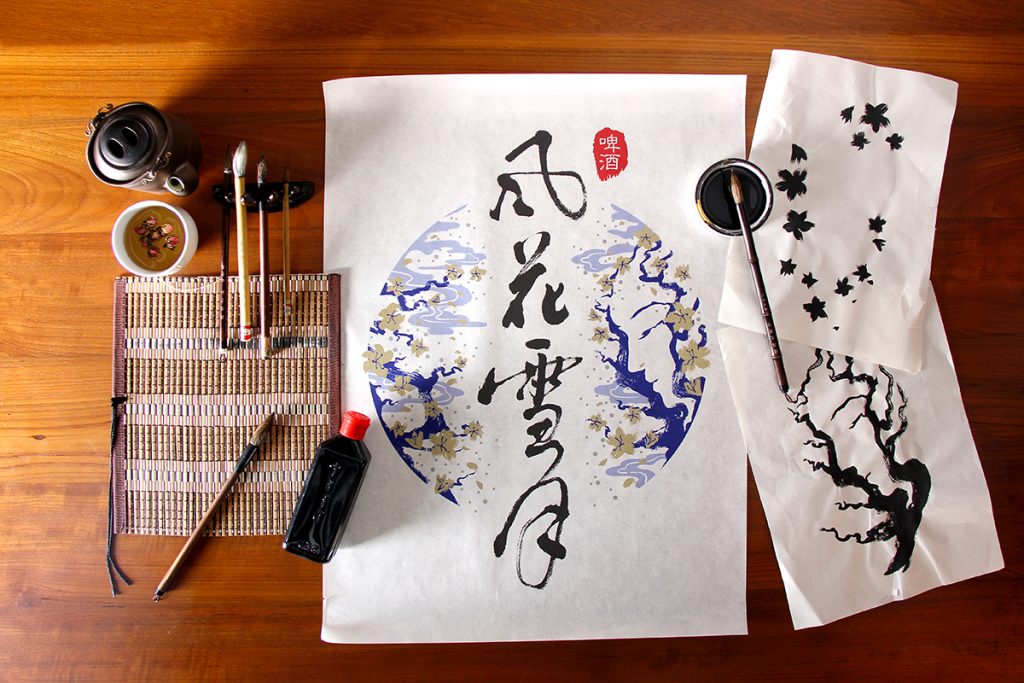 風花雪月
啤酒